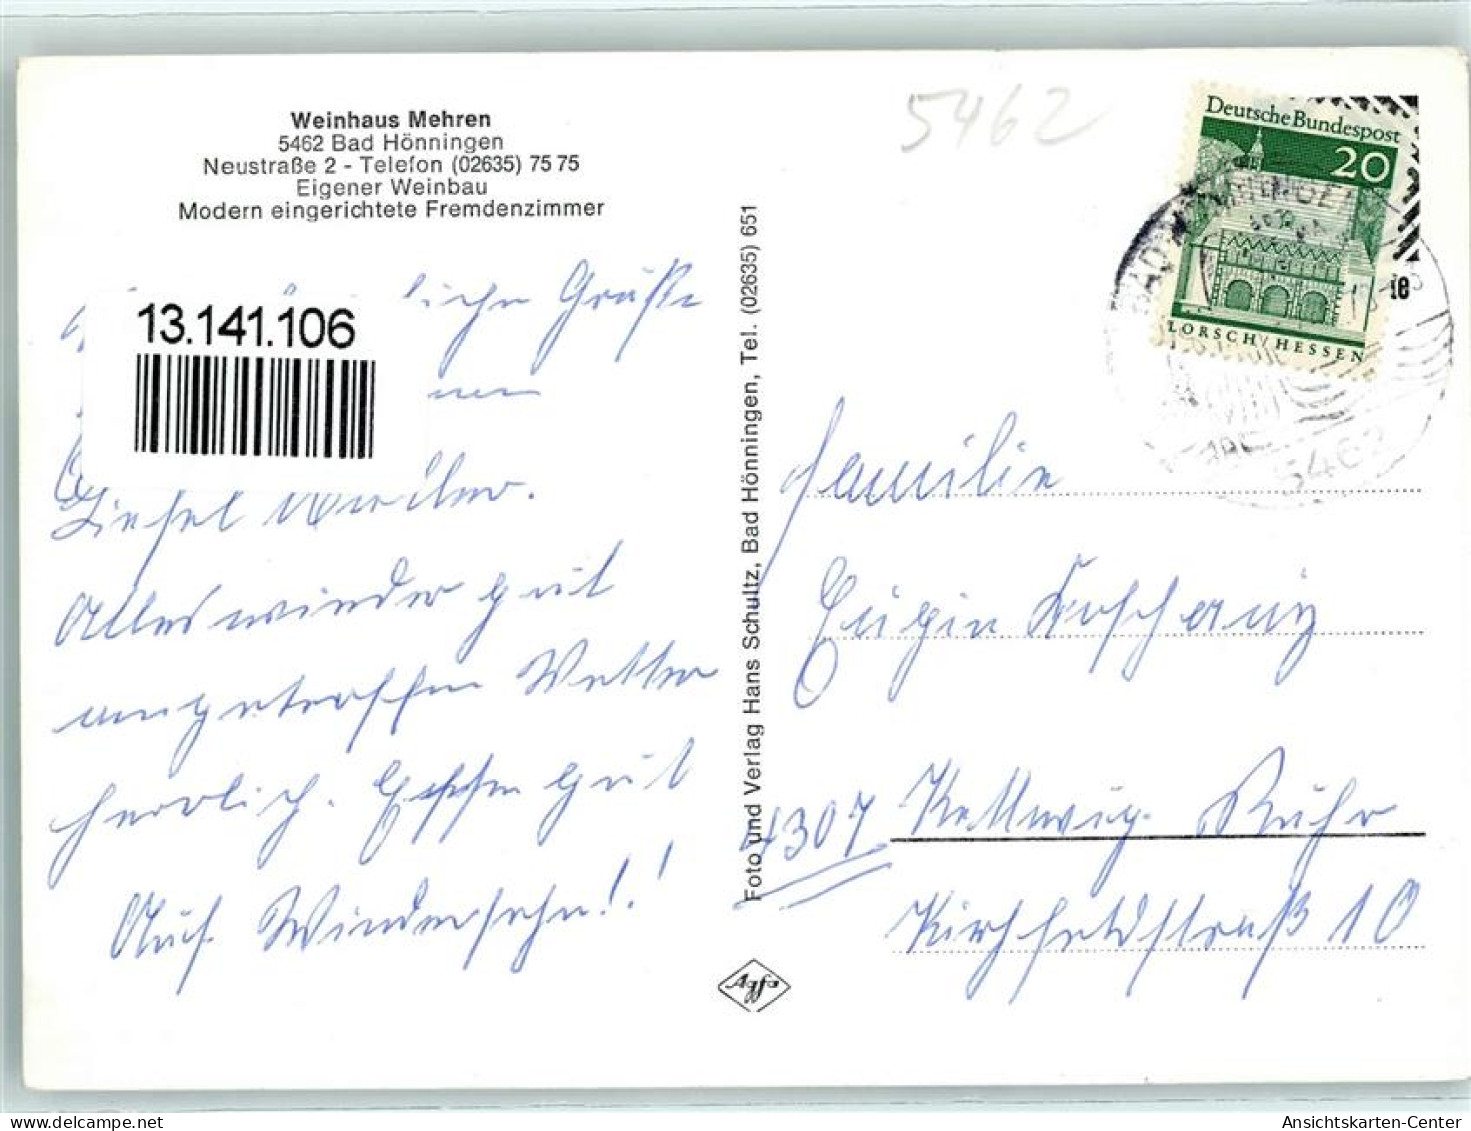 Weinhaus Mehren
5462 Bad Hönningen
Neustraße 2 - Telefon (02635) 75 75
Eigener Weinbau
Modern eingerichtete Fremdenzimmer
5462
Deutsche Bundespost
20
LORSCH/HESSEN
5462
13.141.106
liche Grüße
Liesel
Alles wieder gut
angetroffen Wetter
herrlich. Essen gut
Auf Wiedersehn!!
Foto und Verlag Hans Schultz, Bad Hönningen, Tel. (02635) 651
Agfa
Familie
Eugen
4307 Kettwig. Ruhr
Kirchfeldstraß 10
delcampe.net
Ansichtskarten-Center